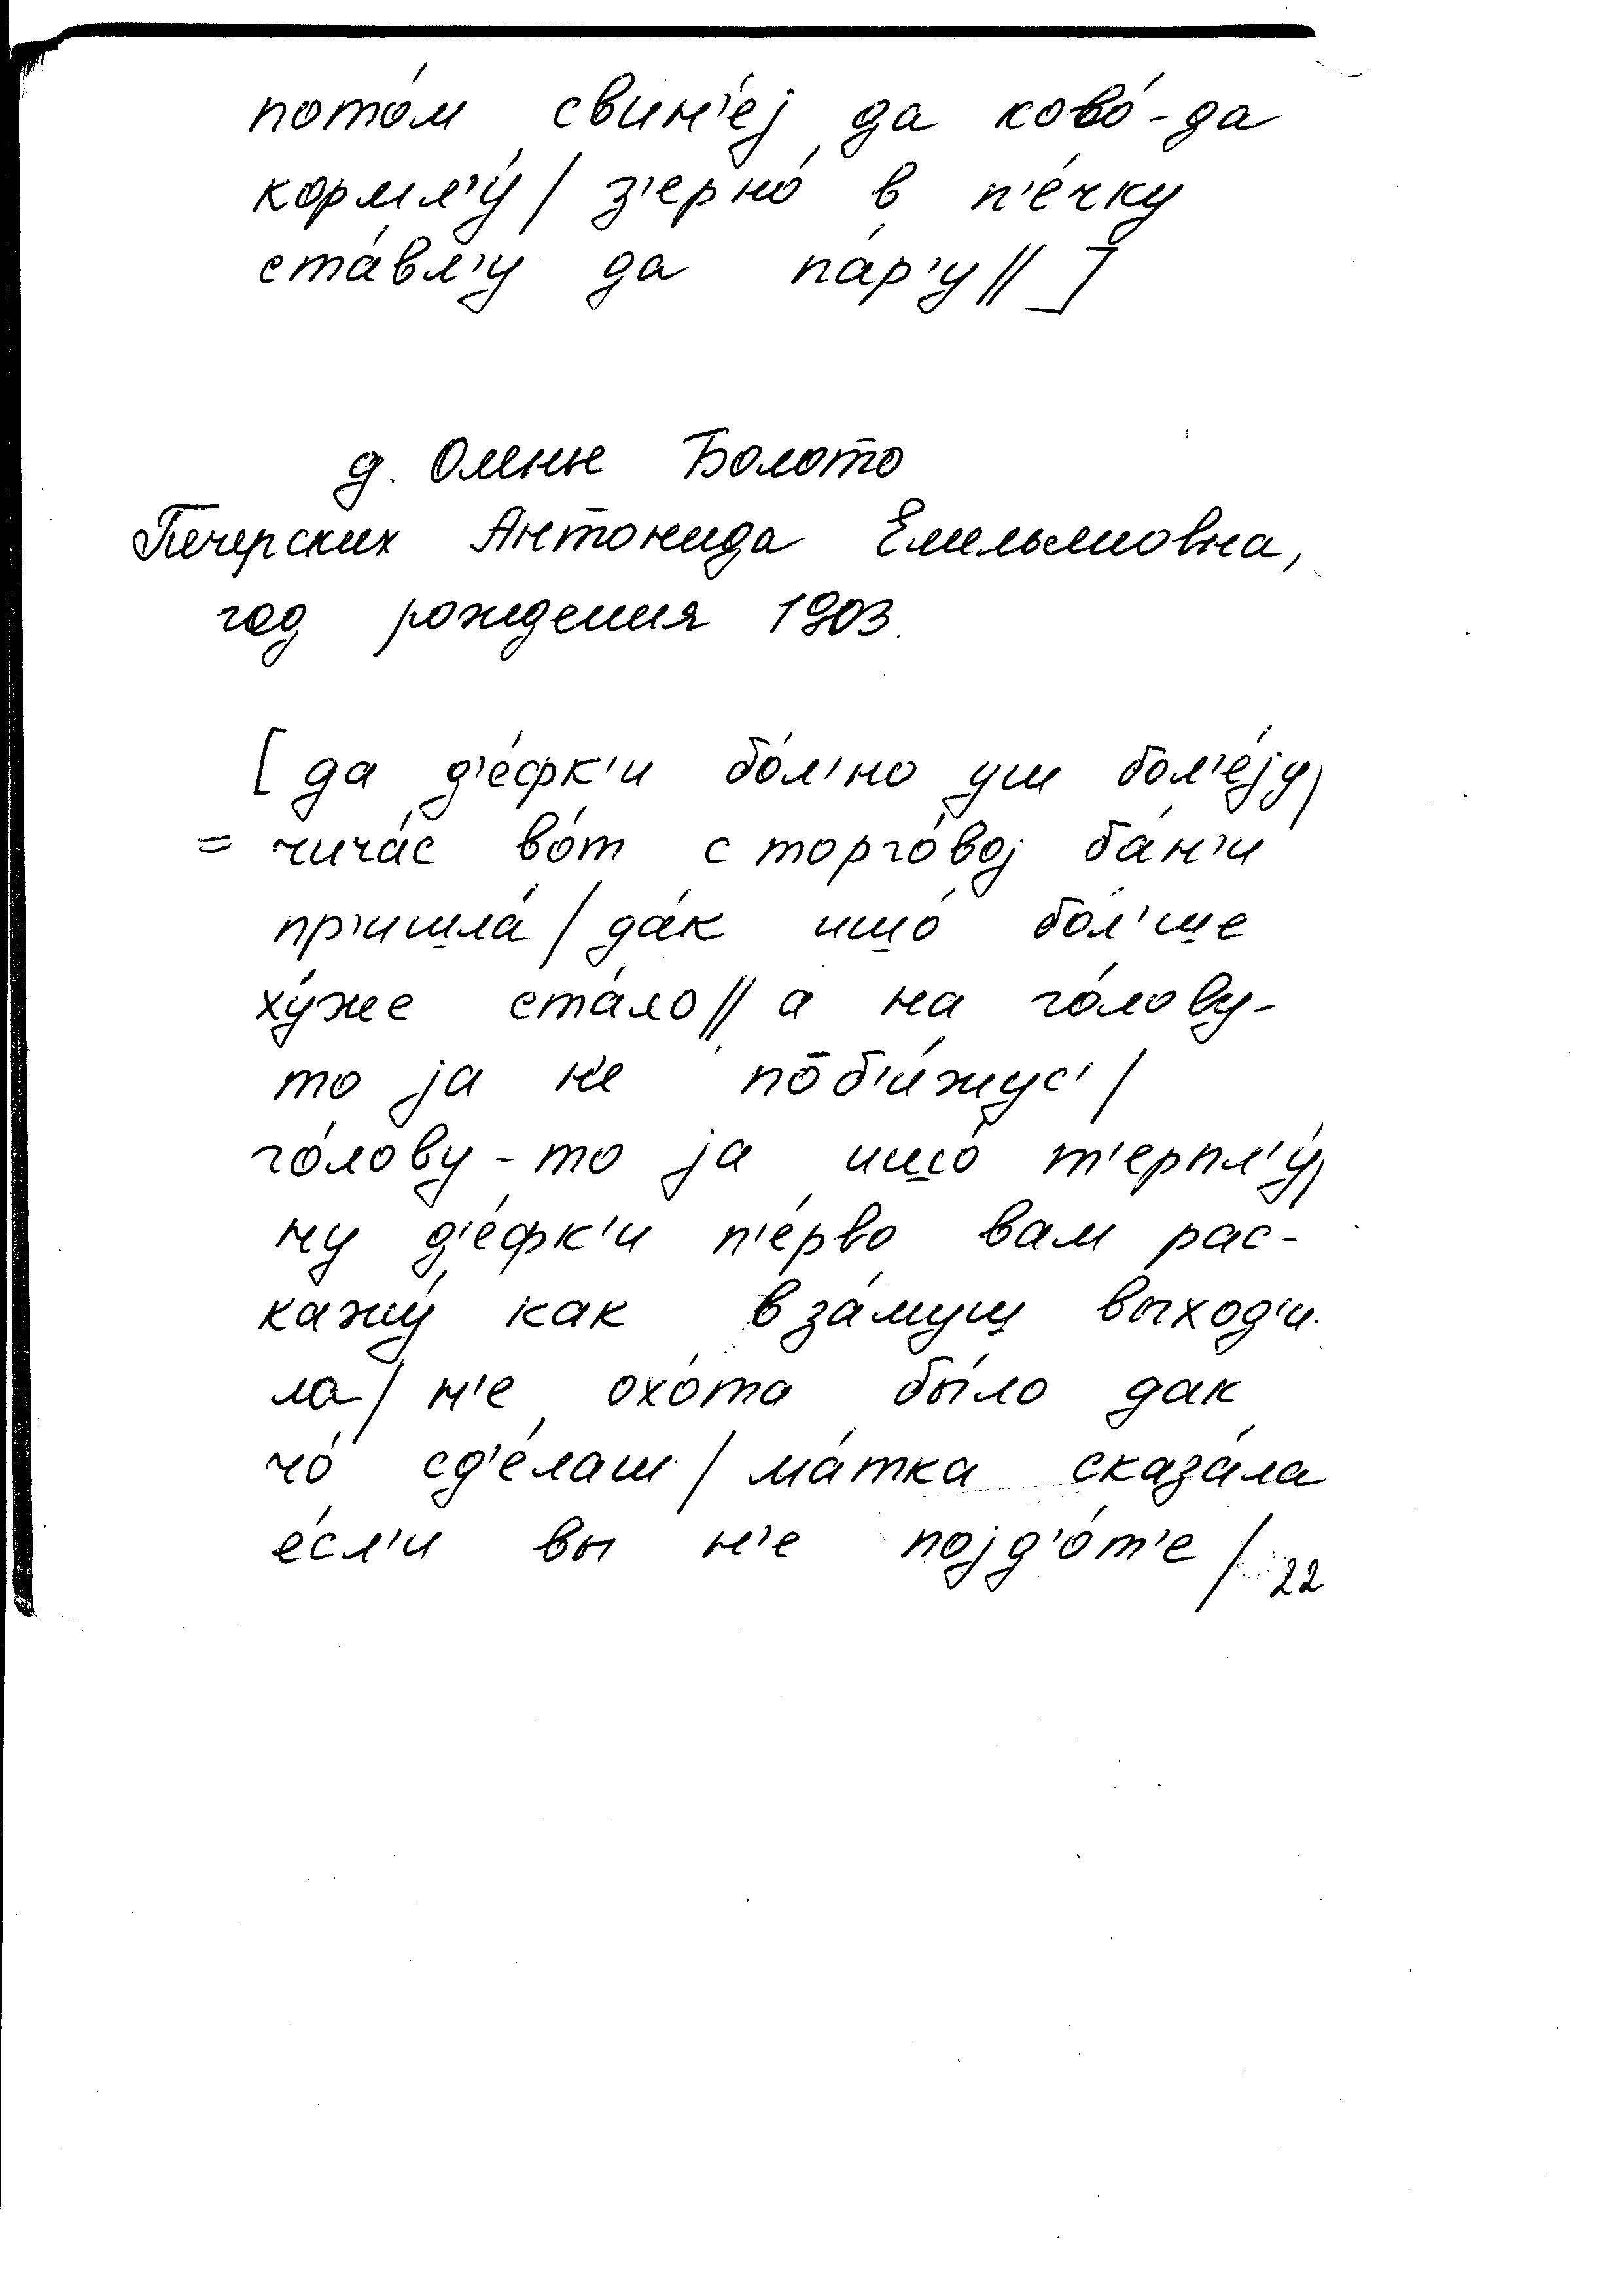 пото́м свин'е́ј да ково́-да
кормл'у́ / з'ерно́ в п'е́чку
ста́вл'у да па́р'у // ]
д. Оленье Болото
Печерских Антонида Емельяновна,
год рождения 1903.
[ да д'е́фк'и бо́л'но уш бол'е́ју /
= чича́с во́т с торго́вој ба́н'и
пр'ишла́ / да́к ишо́ бо́л'ше
ху́же ста́ло // а на го́лову-
то ја н'е по̄б'и́жус' /
го́лову-то ја ишо́ т'ерпл'у́ /
ну д'е́фк'и п'е́рво вам рас-
кажу́ как в за́муш выход'и-
ла / н'е охо́та бы́ло дак
чо́ сд'е́лаш / ма́тка сказа́ла
е́сл'и вы н'е појд'о́т'е /
22